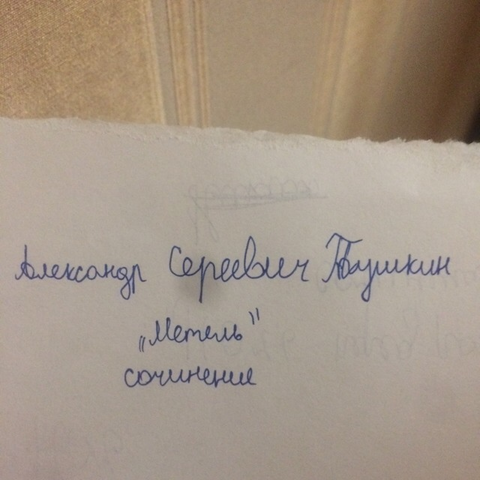 Александр Сергеевич Пушкин
„Метель"
сочинение